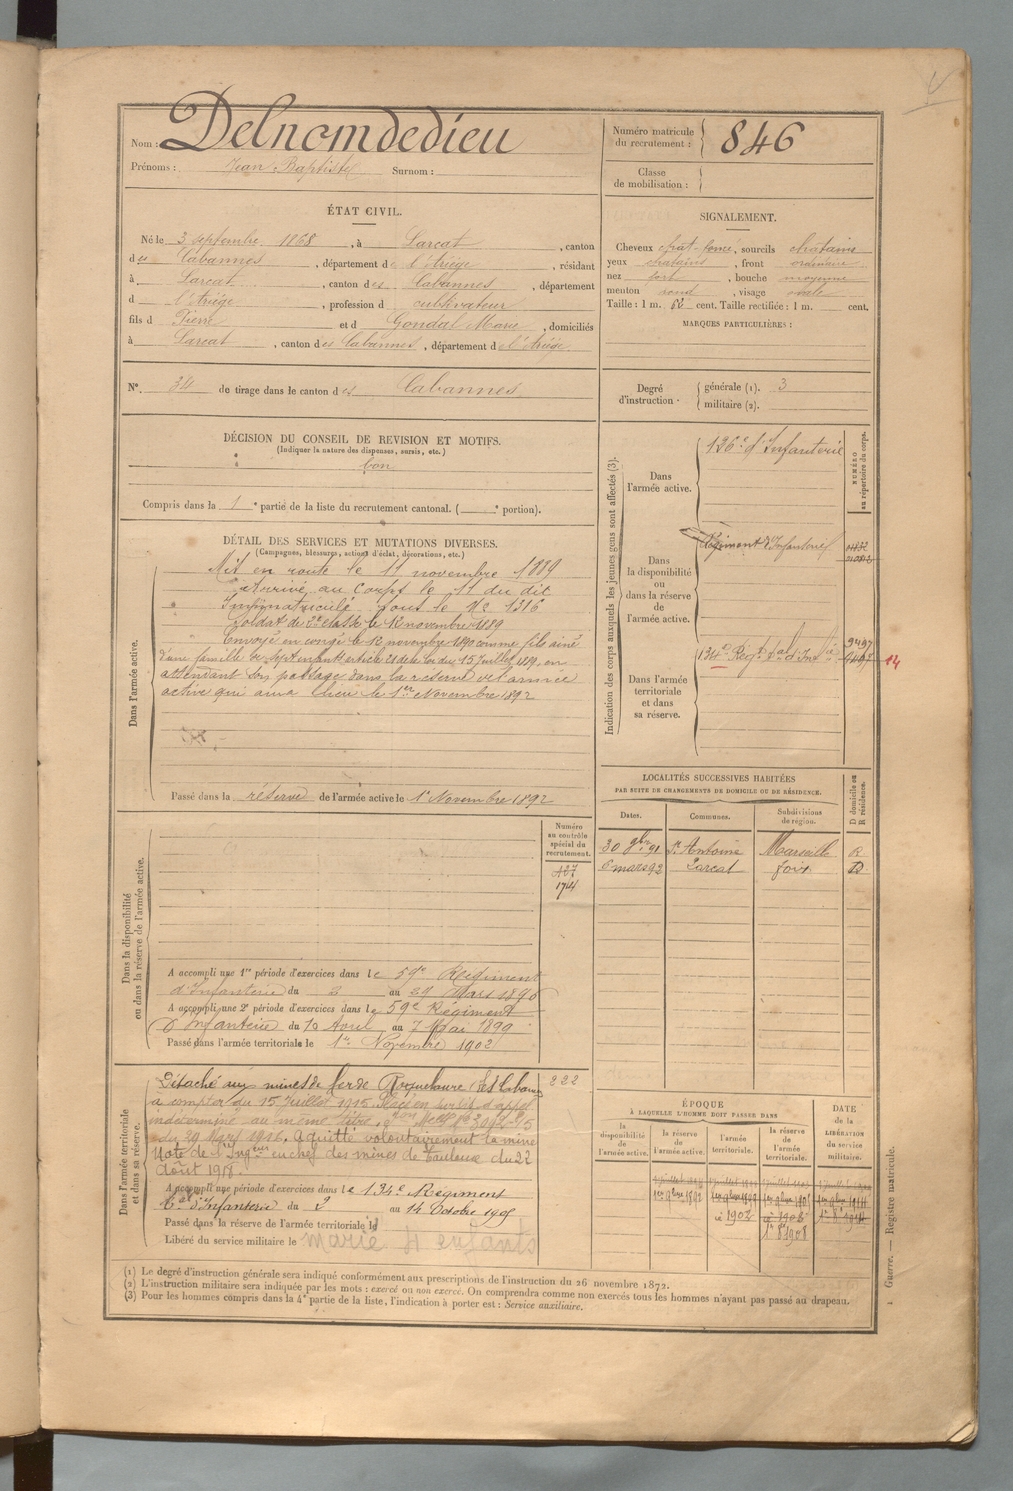 Nom : Delnomdedieu
Prénoms : Jean Baptiste Surnom :
Numéro matricule du recrutement : 846
Classe de mobilisation :
ÉTAT CIVIL.
Né le 3 septembre 1868, à Larcat, canton
des Cabannes, département de l'Ariège, résidant
à Larcat, canton des Cabannes, département
d l'Ariège, profession d cultivateur
fils d Pierre et d Gondal Marie, domiciliés
à Larcat, canton des Cabannes, département de l'Ariège.
N° 34 de tirage dans le canton des Cabannes
SIGNALEMENT.
Cheveux chat-foncé, sourcils chatains
yeux chatains, front ordinaire
nez fort, bouche moyenne
menton rond, visage ovale
Taille : 1 m. 62 cent. Taille rectifiée : 1 m. cent.
MARQUES PARTICULIÈRES :
Degré d'instruction. générale (1). 3
militaire (2).
DÉCISION DU CONSEIL DE REVISION ET MOTIFS.
(Indiquer la nature des dispenses, sursis, etc.)
bon
Compris dans la 1e partie de la liste du recrutement cantonal. ( e portion).
DÉTAIL DES SERVICES ET MUTATIONS DIVERSES.
(Campagnes, blessures, actions d'éclat, décorations, etc.)
Dans l'armée active.
Mis en route le 11 novembre 1889
Arrivé au corps le 11 du dit
Immatriculé sous le No 1316
Soldat de 2e classe le 12 novembre 1889
Envoyé en congé le 12 novembre 1890 comme fils ainé
d'une famille de sept enfants article 21 de la loi du 15 Juillet 1889, en
attendant son passage dans la réserve de l'armée
active qui aura lieu le 1er Novembre 1892
Passé dans la réserve de l'armée active le 1er Novembre 1892
Indication des corps auxquels les jeunes gens sont affectés (3).
NUMÉRO au répertoire du corps.
Dans l'armée active.
126e d'Infanterie
Dans la disponibilité ou dans la réserve de l'armée active.
Régiment d'Infanterie
Dans l'armée territoriale et dans sa réserve.
134e Régt tal d'Infie
14
LOCALITÉS SUCCESSIVES HABITÉES
PAR SUITE DE CHANGEMENTS DE DOMICILE OU DE RÉSIDENCE.
Dates. Communes. Subdivisions de région. D domicile ou R résidence.
30 9bre 91 St Antoine Marseille R
6 mars 92 Larcat Foix D
Dans la disponibilité ou dans la réserve de l'armée active.
Numéro au contrôle spécial du recrutement.
1744
A accompli une 1re période d'exercices dans le 59e Régiment
d'Infanterie du 2 au 29 Mars 1896
A accompli une 2e période d'exercices dans le 59e Régiment
d'Infanterie du 10 Avril au 7 Mai 1899
Passé dans l'armée territoriale le 1er Novembre 1902
Dans l'armée territoriale et dans sa réserve.
Détaché aux mines de fer de Roquelaure (Les Cabannes
222
à compter du 15 Juillet 1915. Placé en sursis d'appel
indéterminé au même titre.
du 29 Mars 1916. A quitté volontairement la mine
Note de l'Ingeur en chef des mines de Toulouse du 22
Août 1918.
A accompli une période d'exercices dans le 134e Régiment
tal d'Infanterie du 2 au 14 Octobre 1905
Passé dans la réserve de l'armée territoriale le
Libéré du service militaire le marié 4 enfants
ÉPOQUE
À LAQUELLE L'HOMME DOIT PASSER DANS
la disponibilité de l'armée active. la réserve de l'armée active. l'armée territoriale. la réserve de l'armée territoriale.
DATE de la LIBÉRATION du service militaire.
(1) Le degré d'instruction générale sera indiqué conformément aux prescriptions de l'instruction du 26 novembre 1872.
(2) L'instruction militaire sera indiquée par les mots : exercé ou non exercé. On comprendra comme non exercés tous les hommes n'ayant pas passé au drapeau.
(3) Pour les hommes compris dans la 4e partie de la liste, l'indication à porter est : Service auxiliaire.
1 Guerre. — Registre matricule.